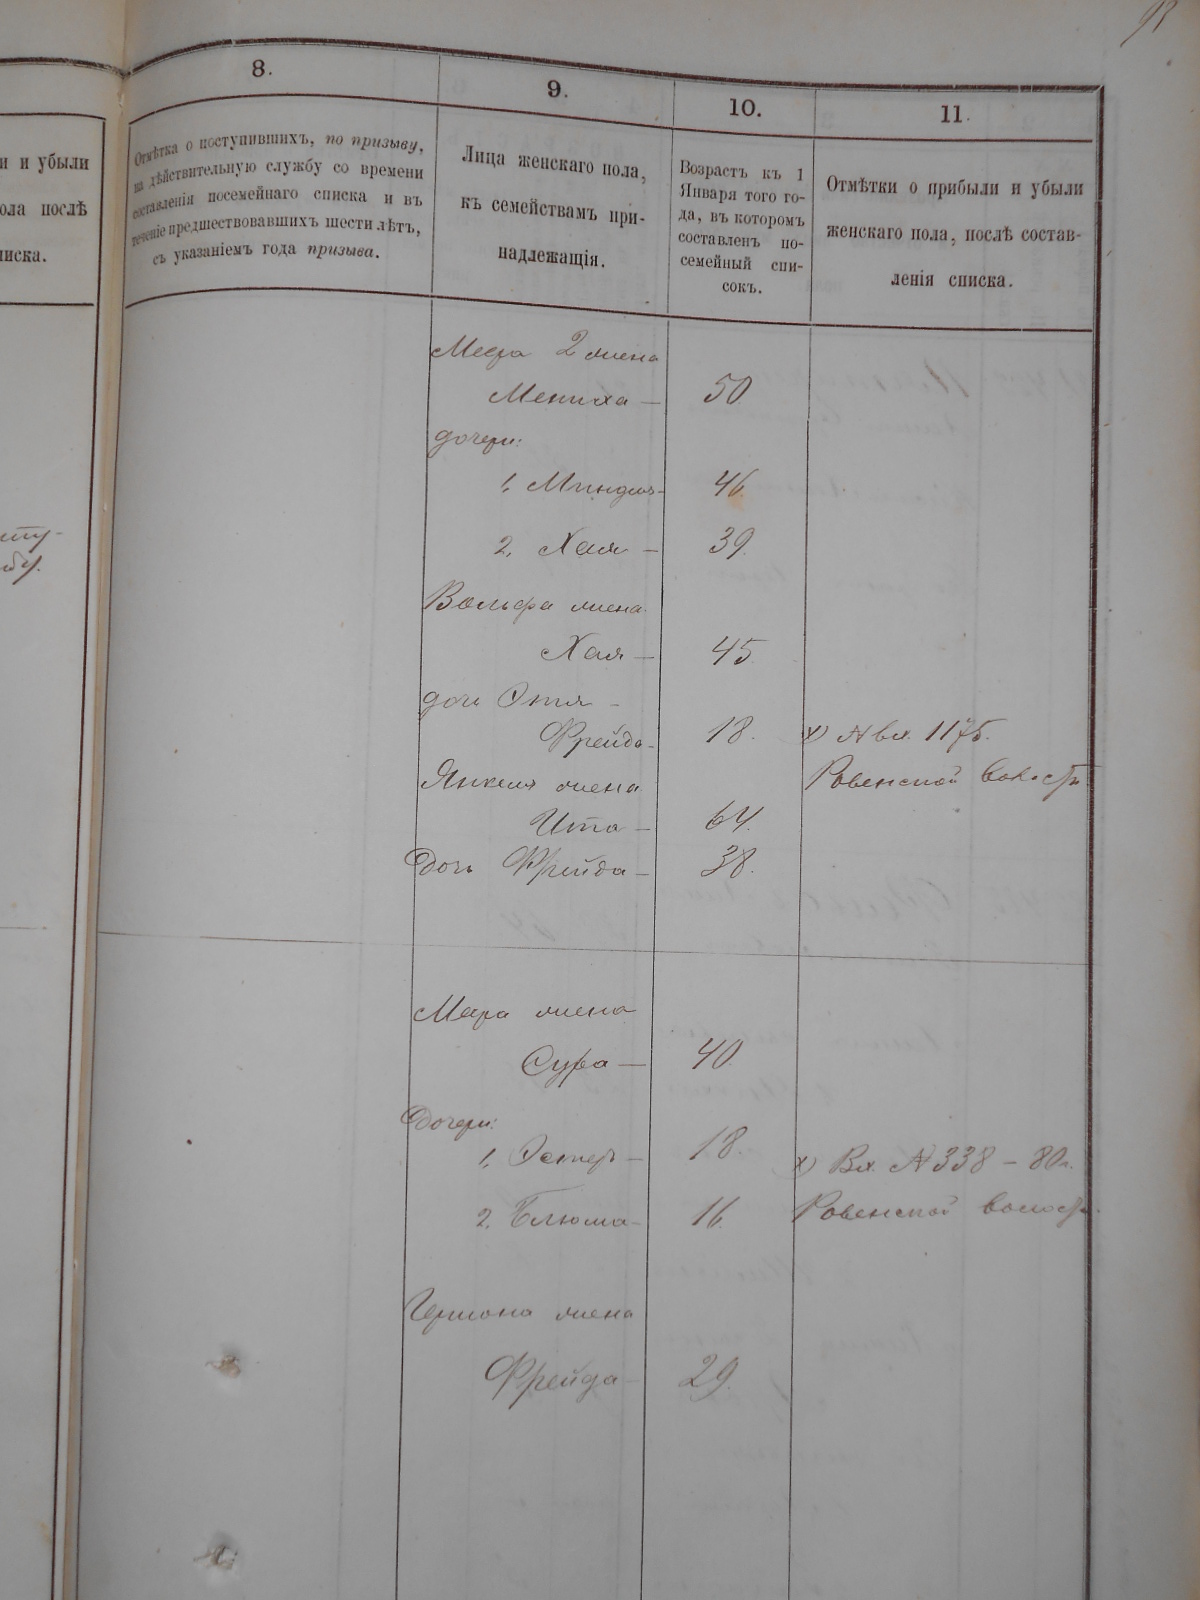 8.
9.
10.
11.
и и убыли
ола послѣ
иска.
Отмѣтка о поступившихъ, по призыву,
на дѣйствительную службу со времени
составленія посемейнаго списка и въ
теченіе предшествовавшихъ шести лѣтъ,
съ указаніемъ года призыва.
Лица женскаго пола,
къ семействамъ при-
надлежащія.
Возрастъ къ 1
Января того го-
да, въ которомъ
составленъ по-
семейный спи-
сокъ.
Отмѣтки о прибыли и убыли
женскаго пола, послѣ состав-
ленія списка.
Меера 2 жена
Мениха — 50
дочери:
1. Миндля 46
2. Хая — 39.
Вольфа жена
Хая — 45
доч Этля -
Фрейда - 18. х) № вх. 1175.
Янкеля жена Ровенской волости
Ита — 64.
Дочь Фрейда — 38.
Меера жена
Сура — 40.
Дочери:
1. Эстер — 18. х) Вх. № 338 – 80г.
2. Блюма - 16 Ровенской волости.
Гершона жена
Фрейда - 29.